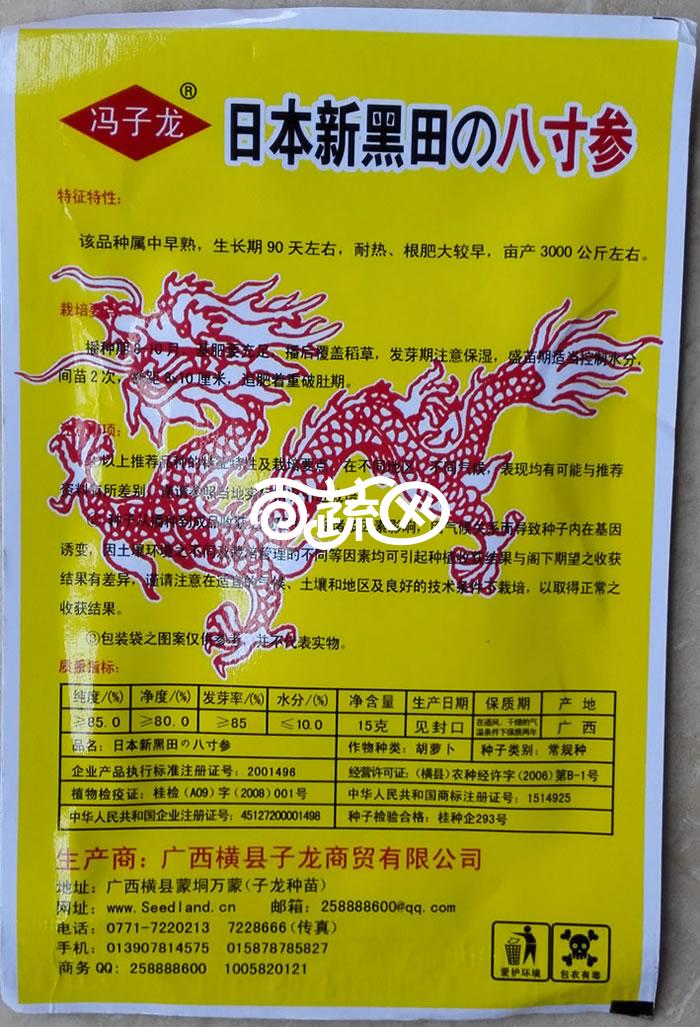 冯子龙®
日本新黑田の八寸参
特征特性:
该品种属中早熟，生长期90天左右，耐热、根肥大较早，亩产3000公斤左右。
栽培要
播种期8-10月，基肥要充足，播后覆盖稻草，发芽期注意保湿，盛苗期适当控制水分，
间苗2次，距8x10厘米，追肥着重破肚期。
项:
以上推荐品种的特性及栽培要点，在不同地区、不同气候，表现均有可能与推荐
资料有所差别，谨请参照当地
@蔬菜网
②种子从播种到成品收获，影响，因气候关系而导致种子内在基因
诱变，因土壤环境之不同及管理的不同等因素均可引起种植收获结果与阁下期望之收获
结果有差异，谨请注意在适宜的气候、土壤和地区及良好的技术条件下栽培，以取得正常之
收获结果。
③包装袋之图案仅供参考，并不代表实物。
质量指标:
纯度/(%) 净度/(%) 发芽率/(%) 水分/(%) 净含量 生产日期 保质期 产 地
≥85.0 ≥80.0 ≥85 ≤10.0 15克 见封口 在通风、干燥的气温条件下保质两年 广 西
品名: 日本新黑田の八寸参 作物种类: 胡萝卜 种子类别: 常规种
企业产品执行标准注册证号: 2001496 经营许可证: (横县)农种经许字(2006)第B-1号
植物检疫证: 桂检(A09)字(2008)001号 中华人民共和国商标注册证号: 1514925
中华人民共和国企业注册证号: 45127200001498 种子检验合格: 桂种企293号
生产商: 广西横县子龙商贸有限公司
地址: 广西横县蒙垌万蒙(子龙种苗)
网址: www.Seedland.cn 邮箱: 258888600@qq.com
电话: 0771-7220213 7228666(传真)
手机: 013907814575 015878785827
商务QQ: 258888600 1005820121
爱护环境 包衣有毒